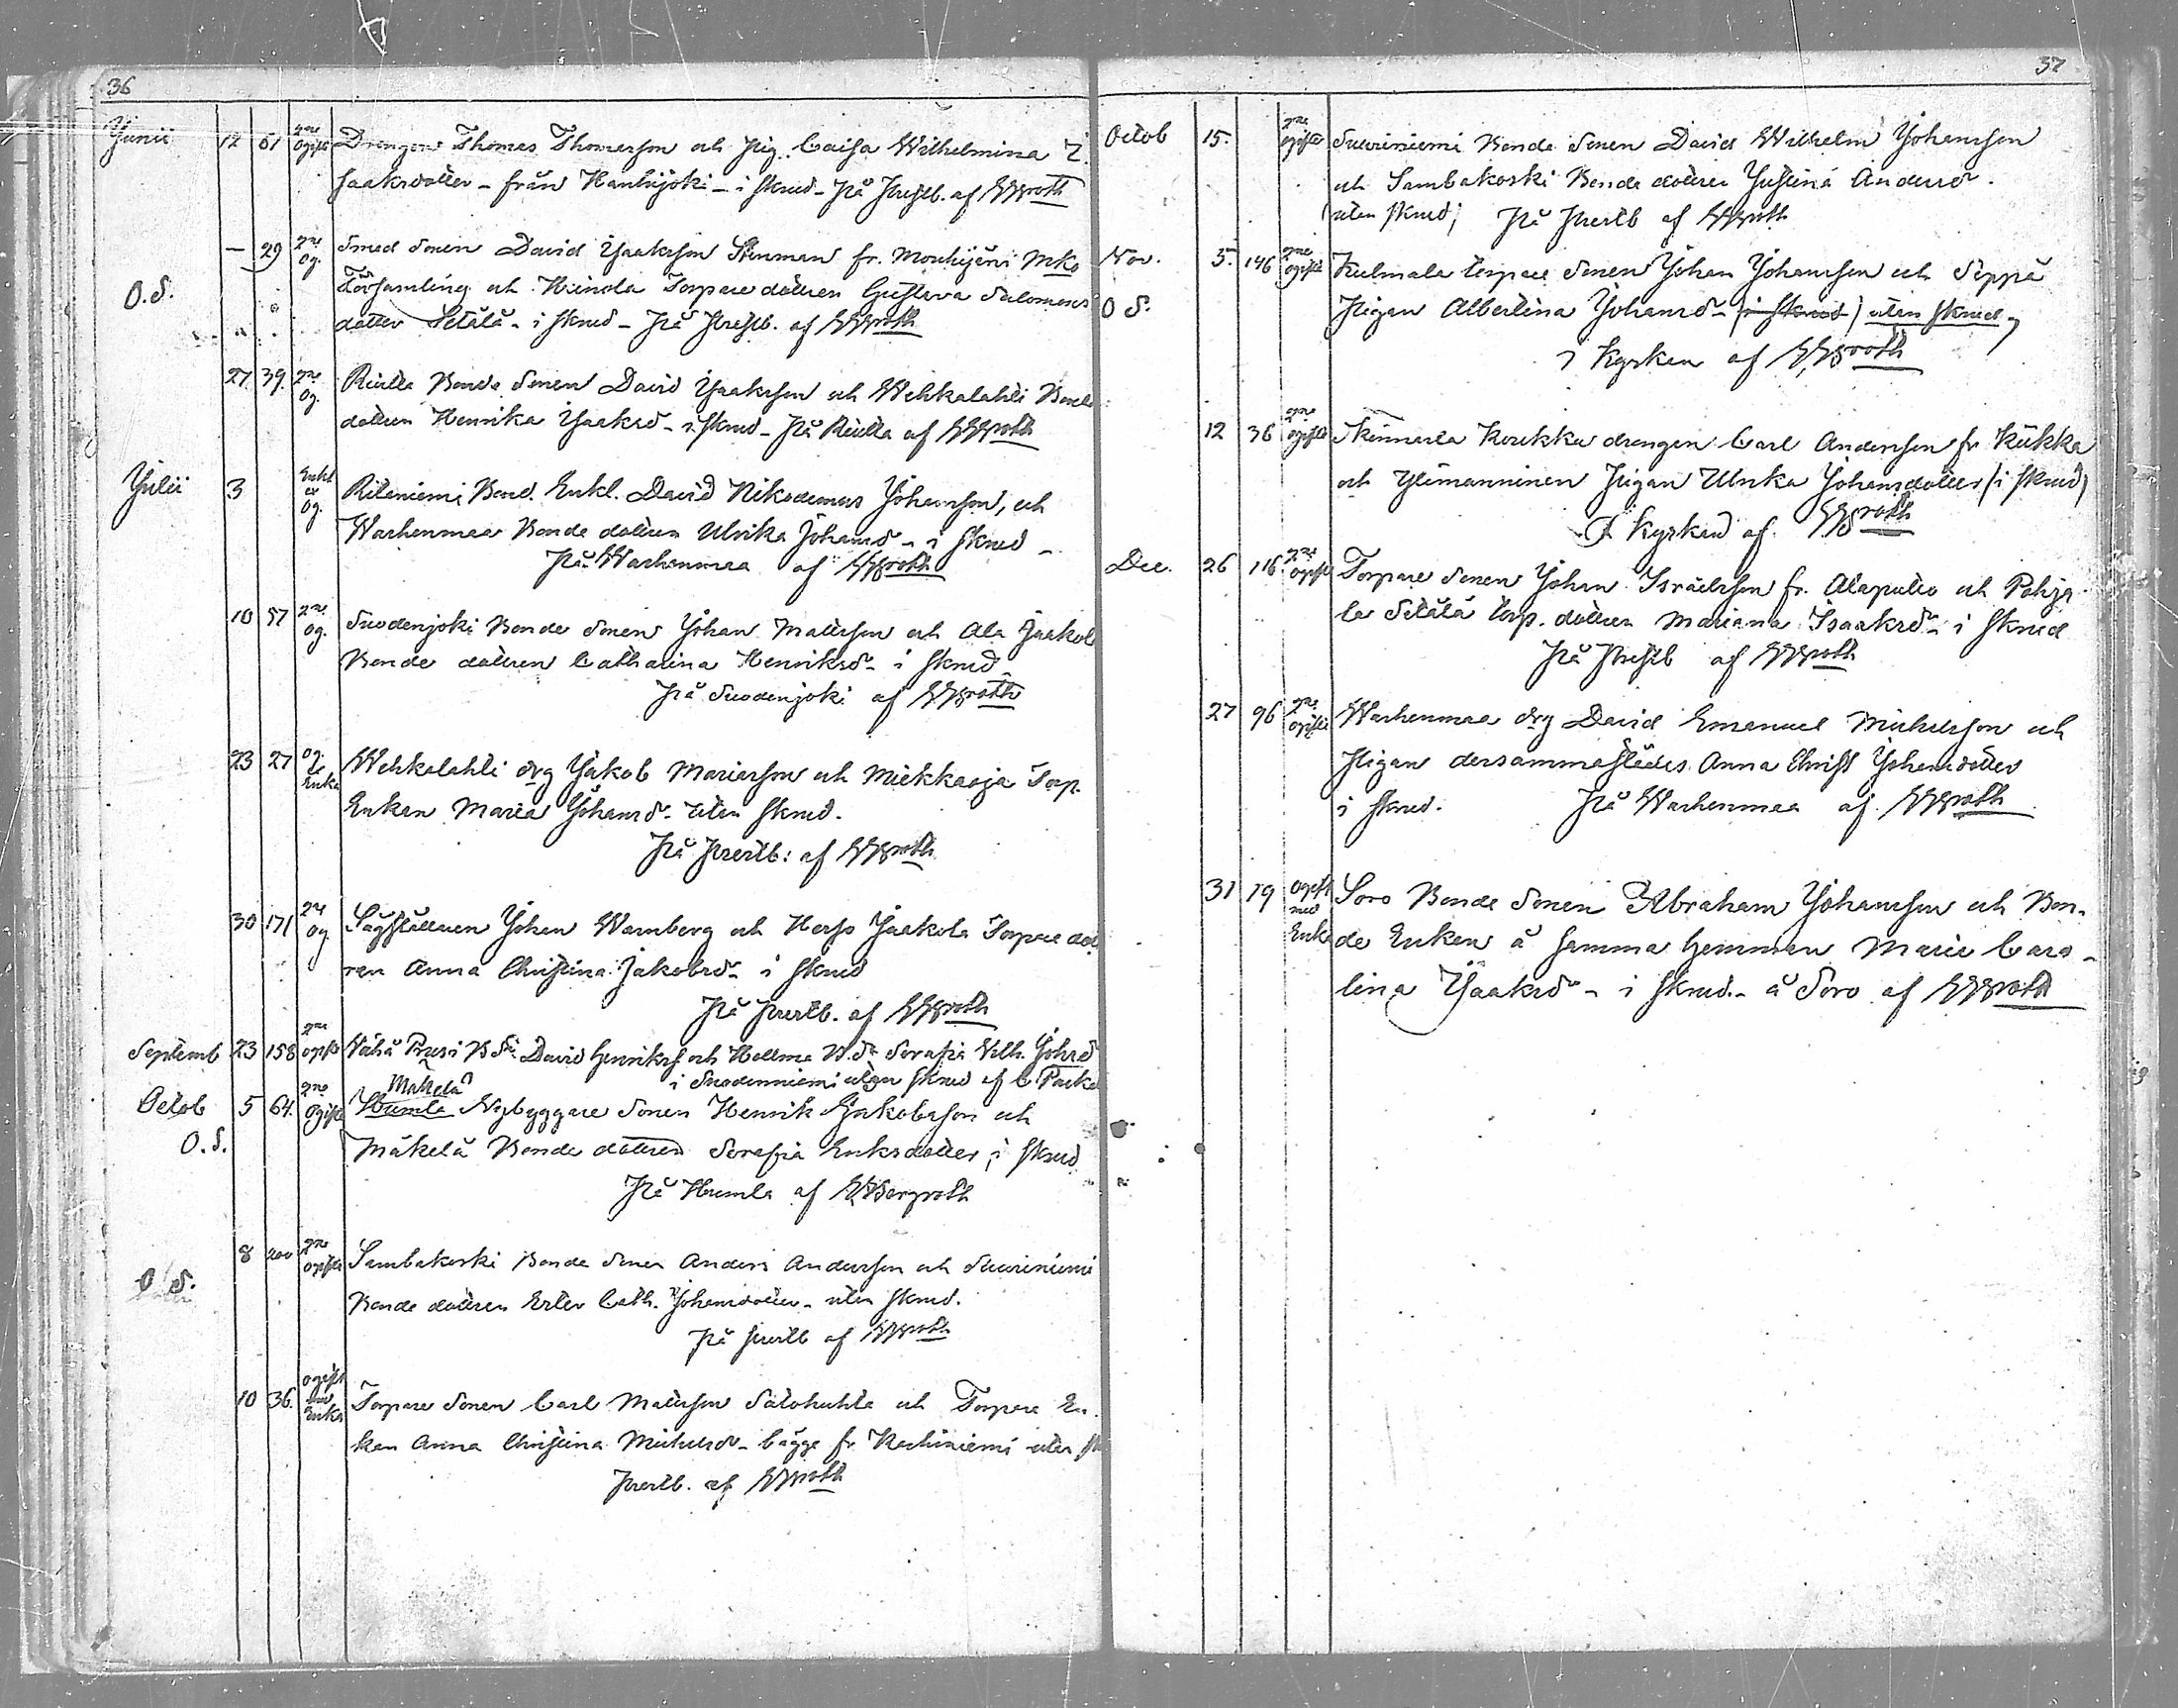 36
Junii 12 61 2ne ogifte Drengen Thomas Thomasson och pig. Caisa Wilhelmina I-
saaksdotter - från Hanhijoki - i skrud - På Prestb. af GWgroth
O.S. — 29 2ne og. Smed Sonen David Isaaksson Stenman fr. Mouhijärvi Mko
Församling och Hiinola Torpare dottren Gustava Salomons
dotter Setälä - i skrud - På Prestb. af GWgroth
27 39. 2ne og. Riutta Bonde Sonen David Isaaksson och Wehkalahti Bonde
dottren Henrika Isaaksd - i skrud - På Riutta af GWgroth
Julii 3 Enkl. og. Riiteniemi Bond. Enkl. David Nikodemus Johansson, och
Warhenmaa Bonde dottren Ulrika Johansd - i skrud -
På Warhenmaa af GWgroth
10 57 2ne og. Suodenjoki Bonde Sonen Johan Mattsson och Ala Jaakola
Bonde dottren Catharina Henriksd - i skrud
på Suodenjoki af GWgroth
23 27 og. Enka Wehkalahti drg Jakob Mariasson och Miekkaoja Torp.
Enkan Maria Johansd - utan skrud.
På Prestb: af GWgroth
30 171 2ne og. Johan Warnberg och Herss Jaakola Torpare dot
ren Anna Christina Jakobsd - i skrud
På Prestb. af GWgroth
Septemb 23 158 2ne ogifte Wähä Prusi David Henrikss och Hollma Serafia Wilh. Johsd
i Suodenniemi utan skrud af C
Mäkelä
Octob 5 64. 2ne ogifte Humla Nybyggare Sonen Henrik Jakobsson och
O.S. Mäkelä Bonde dottren Serafia Eriksdotter, i skrud
På Humla af GWBergroth
O S. 8 200 2ne ogifte Sambakoski Bonde Sonen Anders Andersson och Suoriniemi
Bonde dottren Ester Cath. Johansdotter - utan skrud.
på Prestb af GWgroth
10 36. ogift med Enka Torpare Sonen Carl Mattsson Salohuhta och Torpare En-
kan Anna Christina Michelsd - bägge fr. Kaukiniemi utan sk
Prestb. af GWgroth
37
Octob 15. 2ne ogifte Suoriniemi Bonde Sonen David Wilhelm Johansson
och Sambakoski Bonde dottren Justina Andersd.
utan skrud; På Prestb af GWgroth
Nov. 5. 146 2ne ogifte Kulmala torpare Sonen Johan Johansson och Seppä
O S. Pigan Albertina Johansd - (i skrud) utan skrud,
i Kyrkan af GWgroth
12 36 2ne ogifte Koukka drengen Carl Andersson fr. Kukka
och Ylimanninen Pigan Ulrika Johansdotter (i skrud)
I Kyrkan af GWgroth
Dec. 26 116 2ne ogifte Torpare Sonen Johan Israelsson fr. Alaputto och Pohja
la Setälä torp. dottren Mariana Isaaksd - i skrud
På Prestb af GWgroth
27 96 2ne ogifte Warhenmaa drg David Emanuel Michelsson och
Pigan dersammastädes Anna Christ Johansdotter
i skrud. På Warhenmaa af GWgroth
31 19 ogift med Enka Soro Bonde Sonen Abraham Johansson och Bon-
de Enkan å samma hemman Maria Caro-
lina Isaaksd - i skrud. - å Soro af GWgroth